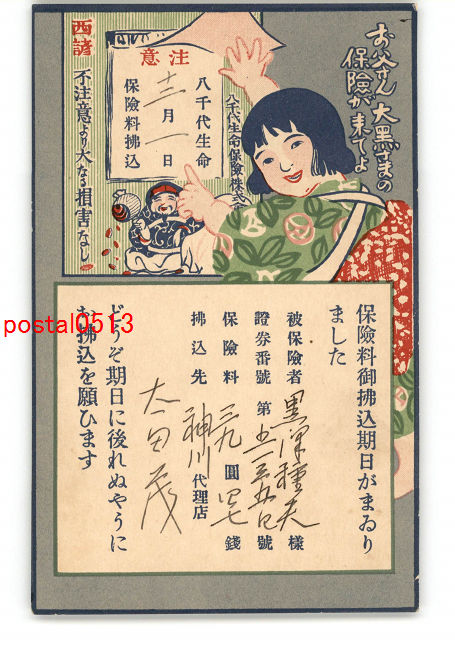 お父さん大黒さまの
保險が来てよ
注意
八千代生命
十二月一日
保險料拂込
八千代生命保險株式
西諺
不注意より大なる損害なし
保險料御拂込期日がまゐり
ました
被保險者 黒澤種夫 樣
證券番號 第 號
保險料 三九圓四七錢
拂込先 神川代理店
太田茂
どうぞ期日に後れぬやうに
お拂込を願ひます
postal0513